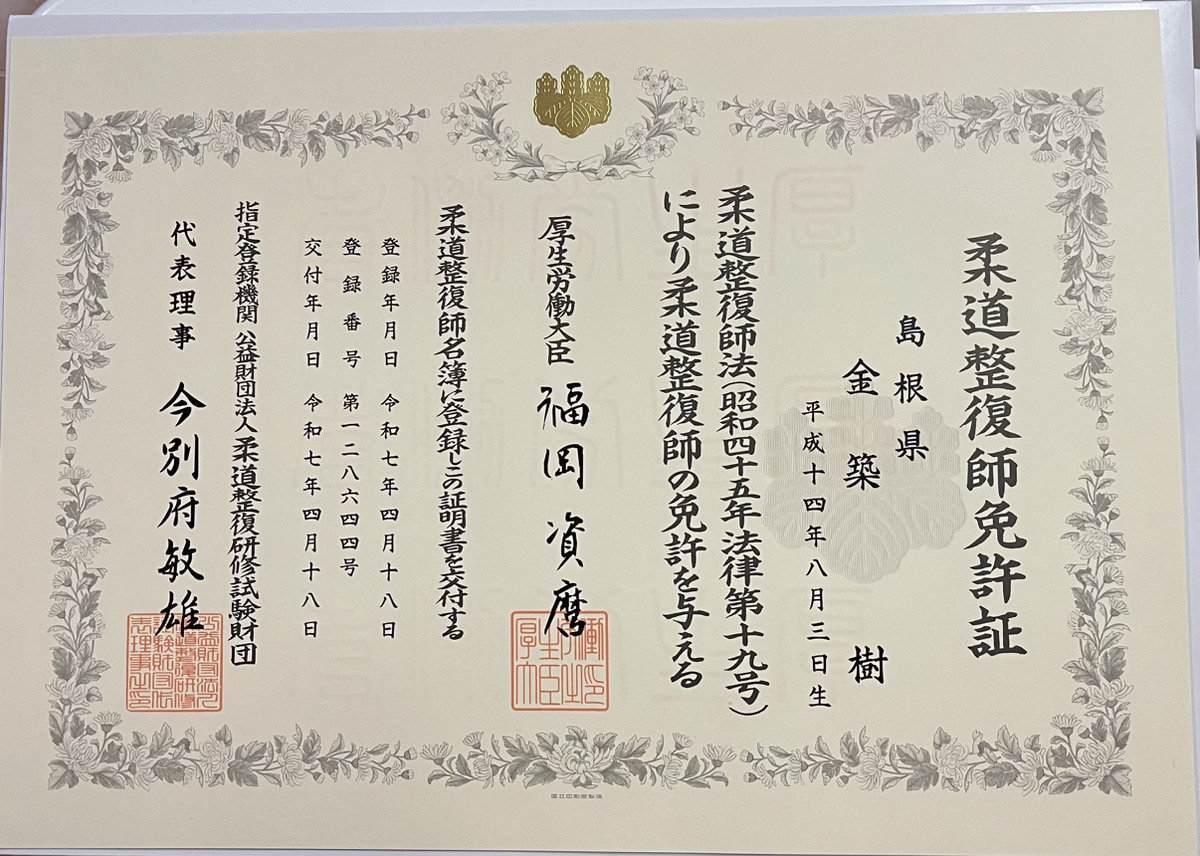 柔道整復師免許証
島根県
金築 樹
平成十四年八月三日生
柔道整復師法(昭和四十五年法律第十九号)
により柔道整復師の免許を与える
厚生労働大臣 福岡資麿
柔道整復師名簿に登録しこの証明書を交付する
登録年月日 令和七年四月十八日
登録番号 第一二八六四四号
交付年月日 令和七年四月十八日
指定登録機関 公益財団法人柔道整復研修試験財団
代表理事 今別府敏雄
国立印刷局製造